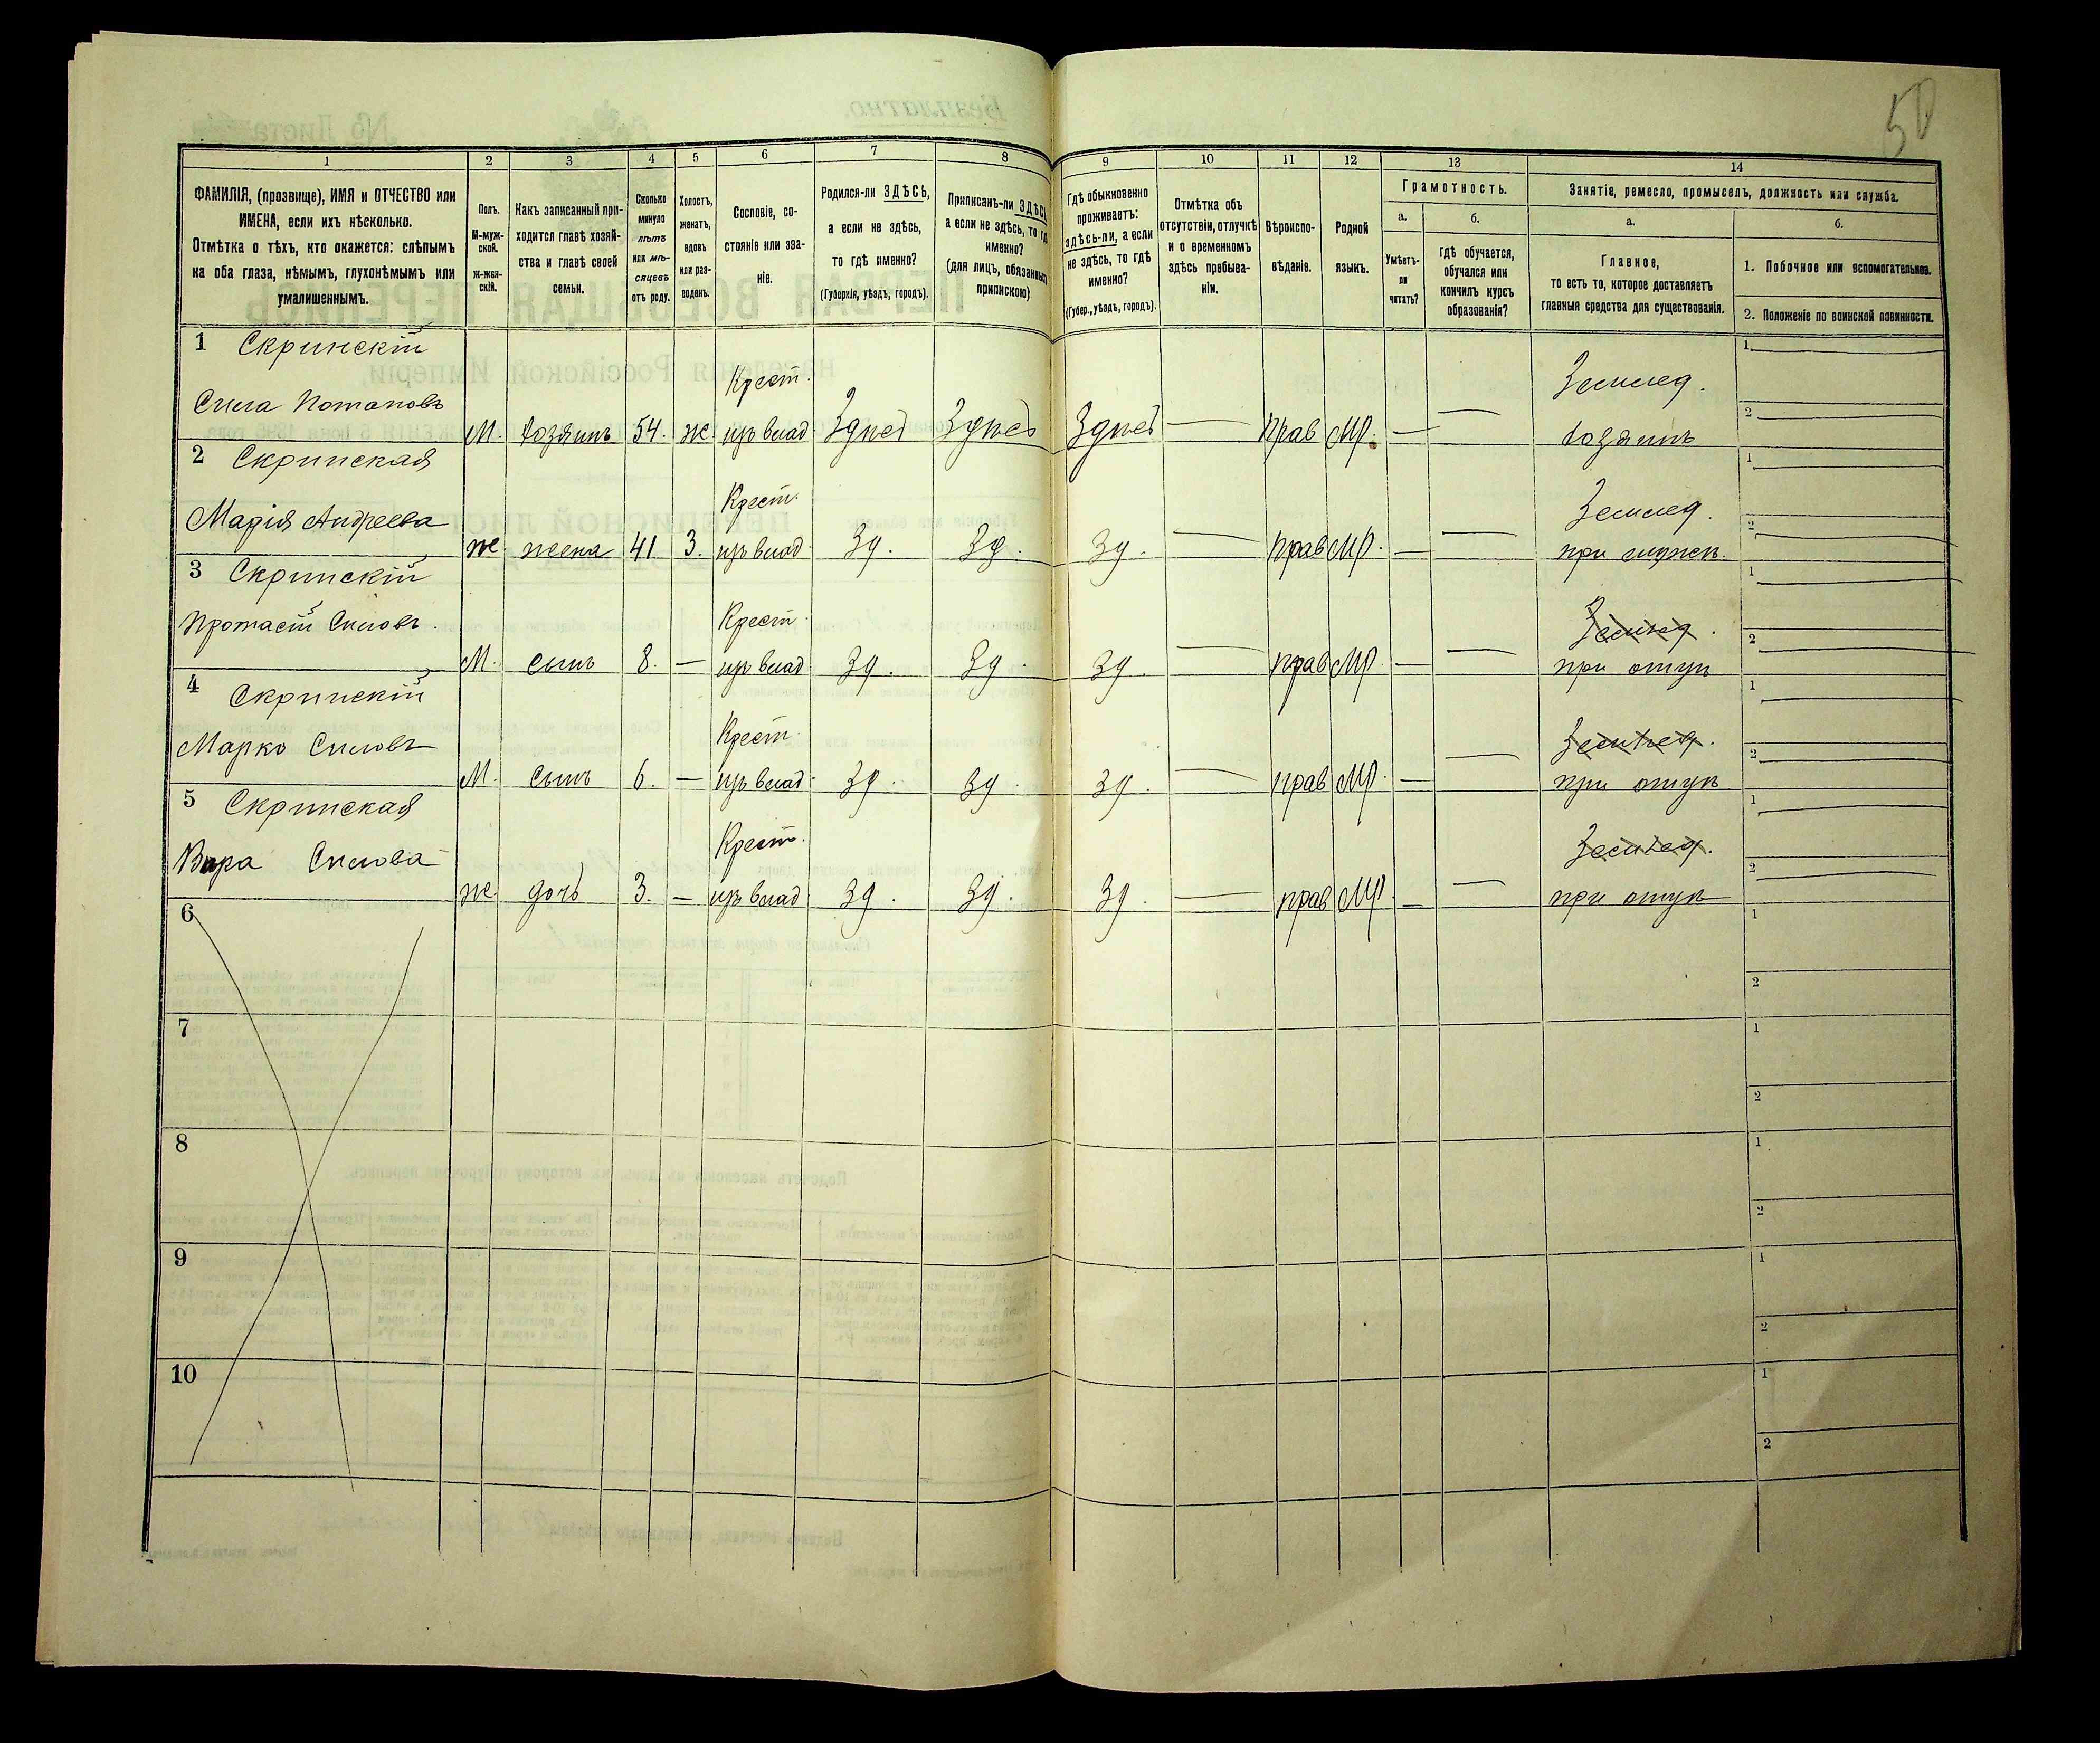 50
1 2 3 4 5 6 7 8 9 10 11 12 13 14
ФАМИЛІЯ, (прозвище), ИМЯ и ОТЧЕСТВО или
ИМЕНА, если ихъ нѣсколько.
Отмѣтка о тѣхъ, кто окажется: слѣпымъ
на оба глаза, нѣмымъ, глухонѣмымъ или
умалишеннымъ.
Полъ.
М-муж-
ской.
Ж-жен-
скій.
Какъ записанный при-
ходится главѣ хозяй-
ства и главѣ своей
семьи.
Сколько
минуло
лѣтъ
или мѣ-
сяцевъ
отъ роду.
Холостъ,
женатъ,
вдовъ
или раз-
веденъ.
Сословіе, со-
стояніе или зва-
ніе.
Родился-ли ЗДѢСЬ,
а если не здѣсь,
то гдѣ именно?
(Губернія, уѣздъ, городъ).
Приписанъ-ли ЗДѢСЬ,
а если не здѣсь, то гдѣ
именно?
(для лицъ, обязанныхъ
припискою)
Гдѣ обыкновенно
проживаетъ:
здѣсь-ли, а если
не здѣсь, то гдѣ
именно?
(Губер., уѣздъ, городъ).
Отмѣтка объ
отсутствіи, отлучкѣ
и о временномъ
здѣсь пребыва-
ніи.
Вѣроиспо-
вѣданіе.
Родной
языкъ.
Грамотность.
а.
Умѣетъ-
ли
читать?
б.
гдѣ обучается,
обучался или
кончилъ курсъ
образованія?
Занятіе, ремесло, промыселъ, должность или служба.
а.
Главное,
то есть то, которое доставляетъ
главныя средства для существованія.
б.
1. Побочное или вспомогательное.
2. Положеніе по воинской повинности.
1 Скринскій
Крест. Землед. 1 —
Сила Потаповъ 2 —
М. хозяинъ 54. ж. изъ влад Здесь Здесь Здесь — Прав Мр. — — хозяинъ
2 Скринская 1 —
Крест. Землед.
Марія Андреева 2 —
ж. жена 41 З. изъ влад Зд. Зд. Зд. — Прав Мр. — — при мужѣ.
3 Скринскій 1 —
Крест. Землед.
Протасій Силовъ. 2 —
М. сынъ 8. — изъ влад Зд. Зд. Зд. — прав Мр. — — при отцѣ
4 Скринскій 1 —
Крест. Землед.
Марко Силовъ 2 —
М. сынъ 6. — изъ влад Зд. Зд. Зд. — прав Мр. — — при отцѣ
5 Скринская 1 —
Крест. Землед.
Вѣра Силова 2 —
ж. дочь 3. — изъ влад Зд. Зд. Зд. — прав Мр. — — при отцѣ
6 1
2
7 1
2
8 1
2
9 1
2
10 1
2